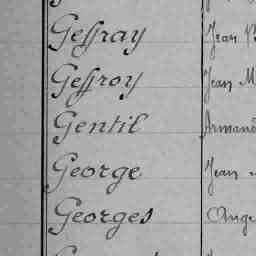 Geffray Jean
Geffroy Jean M
Gentil Armand
George Jean
Georges Ange